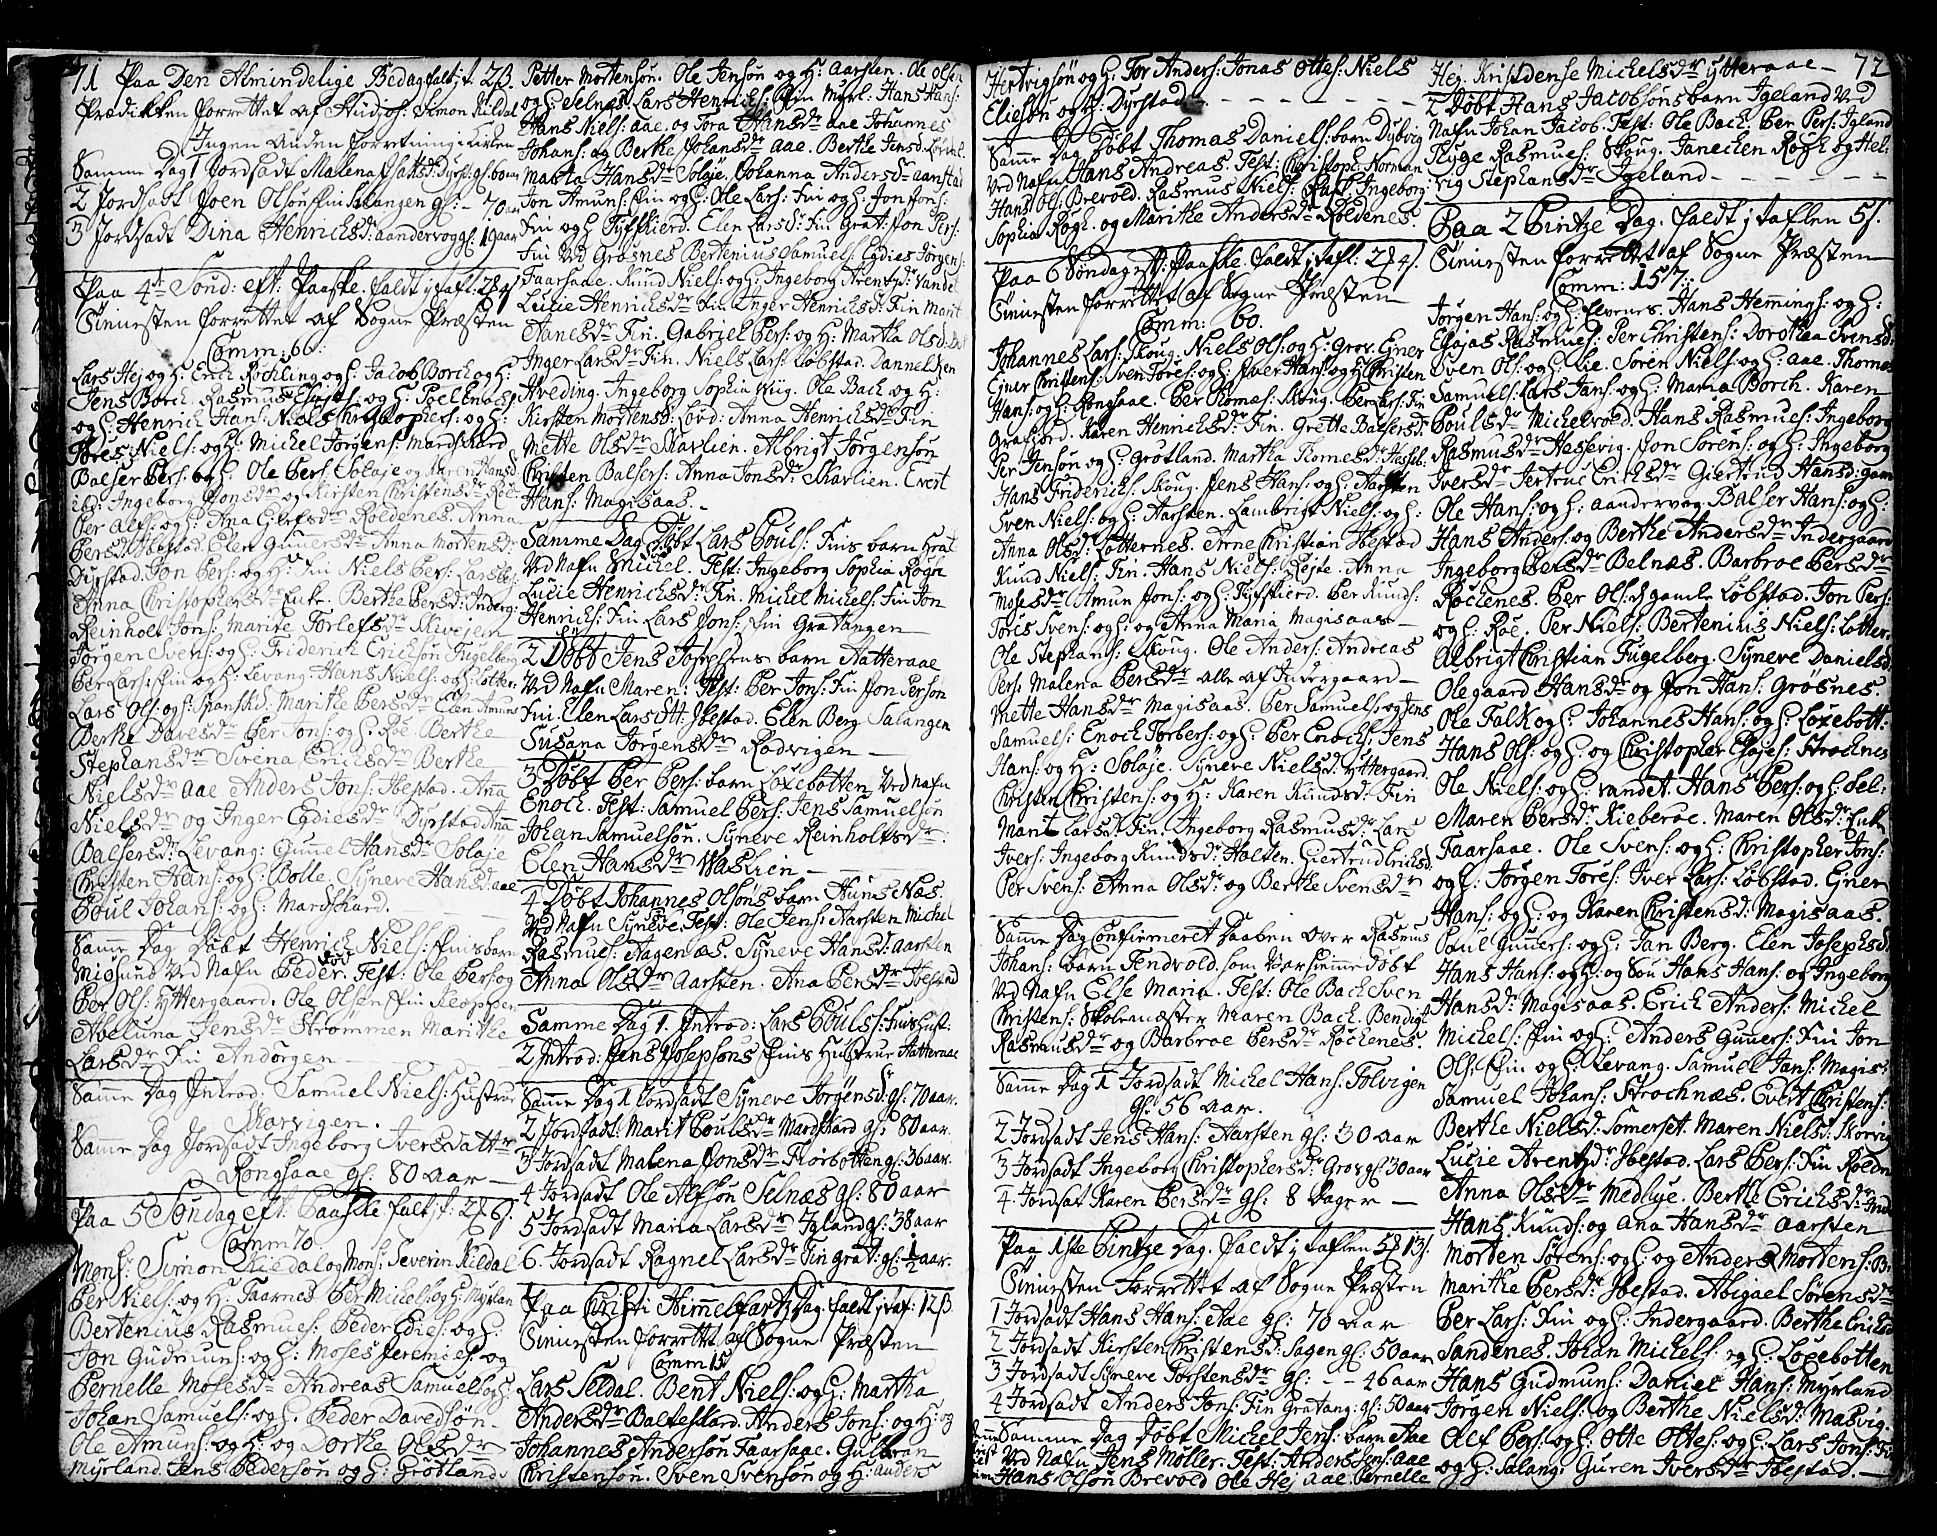 71 Paa Den Almindelige Bedag falt j t. 2 β.
Prædikken forrettet af Stud: Simon Kildal
Ingen Anden forretning i Kirken
Samme Dag 1 Jordsadt Malena Isaksd: Dyrst: gl: born
2 Jordsadt Joen Olson Fin Salangen gl: - 70 aar
3 Jordsadt Dina Henrichsd: aandervog gl: 19 aar
Paa 4de Sønd: eft: Paaske faldt j tafl: 2 β 4 s
Tinnesten forrettet af Sogne Præsten
Comm: 66:
Lars Hej og H: Erich Røchling og H: Jacob Borch og H:
Jens Borch. Rasmus
og H: Henrich Hans: Niels Christophers: og H:
Tores Niels: og H: Michel Jørgens: Mardskard
Balser Pers: og H: Ole Pers: Soløje og Karen Hansd
Ingeborg Jonsdr og Kirsten Christensdr Røe
Per Alfs: og H: Ana Roldenes. Anna
Persd: Ibestad. Elen Gunnersdr Anna Mortensd:
Dyrstad. Jon Pers: og H: Fin Niels Pers:
Anna Christophersdr Enke. Berthe Persd: Inderg:
Reinholt Jons: Marite Torlefsdr Skivejen
Jørgen Svens: og H: Friderich Erichson Fugelberg
Per Lars: Fin og H: Levang. Hans Niels: og H: Lotter:
Lars Ols: og H: Spansd: Marithe Persdr Elen Amuns
Berthe Davesdr Per Jons: og H: Røe Berthe
Stephansdr Sirena Erichsdr Berthe
Nielsdr Aae Anders Jons: Ibestad. Ana
Nielsdr og Inger Egdiesdr Dyrstad Anna
Balsersdr Levang: Gunnel Hansdr Soløje
Christen Hans: og H: Bolle. Syneve Hansd: aae
Poul Johans: og H: Mardskard.
Samme Dag Døbt Henrich Niels: Fins barn
ved Nafn Peder. Test: Ole Pers: og
Per Ols: Yttergaard. Ole Olsen Fin Kloppen
Aveluna Jensdr Strømmen Marithe
Larsdr Fin Andørgen
Samme Dag Introd: Samuel Niels: Hustrue
Skarvigen.
Samme Dag Jordsadt Ingeborg Iversdattr
Rongsaae gl: 80 Aar
Paa 5 Søndag eft: Paaske falt j t: 2 β 6 s.
Comm 70.
Mons: Simon Kildal og Mons: Severin Kildal
Per Niels: og H: Faarnes Per Michels: og H: Myrlan
Bertenius Rasmues: Peder og H:
Jon Gudmuns: og H: Moses Jeremies: og
Pernelle Mosesdr Andreas Samuels: og H:
Johan Samuels: og H. Peder Davedsøn
Ole Amuns: og H: og Dorthe Olsdr
Myrland. Jens Pedersøn og H: Grøtland
Petter Mortensøn. Ole Jensøn og H: Aarsten. Ole Olsen
og H: Selnæs. Lars Henrichs: Fin Myrl. Hans Hans:
Hans Niels: aae. og Tora Hansdr aae Johannes
Johans: og Berthe Johansdr aae. Berthe Jensd:
Martha Hansdr Soløje. Johanna Andersdr aanstad
Jon Amuns: Fin og H: Ole Lars: Fin og H: Jon Jons:
Fin og H: Elen Larsdr Fin Grat: Jon Pers:
Fin ved Grosnes Bertenius Samuels: Egdies Jørgens:
Faarsaae. Knud Niels: og H: Ingeborg Arentzdr Vandet
Lucie Henrichsdr Fin. Inger Henrichsd: Fin Marit
Hanesdr Fin. Gabriel Pers: og H: Martha Olsd:
Inger Larsdr Fin. Niels Lars: Løbstad. Dannel Ken
Hveding. Ingeborg Sophia Kiig. Ole Bach og H:
Kirsten Mortensd: Lovd: Anna Henrichsdr Fin
Mette Olsdr Skarlien. Albrigt Jørgensøn
Christen Balsers: Anna Jonsdr Skarlien. Evert
Hans: Magisaas.
Samme Dag Døbt Lars Pouls: Fins barn Grat:
Ved Nafn Michel. Test: Ingeborg Sophia Røgh
Lucie Henrichsdr Fin. Michel Michels: Fin Jon
Henrichs: Fin Lars Jons: Fin Gratangen
2 Døbt Jens Josephsøns barn Hatteraae
Ved Nafn Maren: Test: Per Jons: Fin Jon Persøn
Fin. Elen Lars Dtt. Ibestad. Elen Berg Salangen
Susana Jørgensdr Rodvigen
3 Døbt Per Pers: barn Loxebotten Ved Nafn
Enoch. Test: Samuel Pers: Jens Samuelsøn
Johan Samuelsøn. Syneve Reinholtsdr:
Elen Hansdr Vaslien
4 Døbt Johannes Olsøns barn Næs
Ved Nafn Syneve. Test: Ole Jens: Aarsten Michel
Rasmues: Aagenæs. Syneve Hansd: Aarsten
Anna Olsdr Aarsten. Ana Persdr Ibestad
Samme Dag 1. Introd: Lars Pouls: Fins Hust:
2 Introd: Jens Josepsøns Fins Hustrue Hatteraae
Samme Dag 1 Jordsadt Syneve Jørgensdr gl: 70 aar.
2 Jordsadt: Marit Poulsdr Mardskard gl: 80 aar
3 Jordsadt Malena Jonsdr Florbotten gl: 36 aar.
4 Jordsadt Ole Alfsøn Selnæs gl: 80 aar
5 Jordsadt Maria Larsdr Igland gl: 38 aar
6. Jordsadt Ragnel Larsdr Fin Grat: gl: ½ aar.
Paa Christi Himmelfartz Dag. faldt j taf: 12 β.
Tinnesten forrettet af Sogne Præsten
Comm 15
Lars Seldal. Bent Niels: og H: Martha
Andersdr Balteskard. Anders Jons: og H: og
Johannes Andersøn Faarsaae. Gulbran
Christensøn. Sven Svensøn og H: Anders
Hertvigsøn og H: Tor Anders: Jonas Ottes: Niels
Eliesøn og H: Dyrstad
Samme Dag Døbt Thomas Daniels: barn Dybvig
Ved Nafn Hans Andreas. Test: Christopher Norman
Hans Ols: Brevold. Rasmus Niels: Ingeborg
Sophia Røgh. og Marithe Andersdr Roldenes.
Paa 6 Søndag eft: Paaske faldt j tafl: 2 β 4 s.
Tinnesten forrettet af Sogne Præsten
Comm: 60.
Johannes Lars: Skoug. Niels Ols: og H: Grov. Ejner
Ejner Christens: Sven Tores: og H: Iver Hans: og H: Christen
Hans: og H: Rongsaae. Per Thomæs: Skoug. Per Lars: Fin
Grafjord. Karen Henrichsd: Fin. Grette Balsersd:
Per Jensøn og H: Grøtland. Martha Thomesdr Hasseb:
Hans Friderichs: Skoug. Jens Hans: og H: Aarsten
Sven Niels: og H: Aarsten. Lambrigt Niels: og H:
Anna Olsd: Lotternes. Arne Christian Ibestad
Knud Niels: Fin. Hans Niels: Anna
Mosesdr Amun Jons: og H: Per Knuds:
Tores Svens: og H: og Anna Maria Magisaas
Ole Stephans: Skoug. Ole Anders: Andreas
Pers: Malena Persdr alle af Indergaard
Mette Hansdr Magisaas. Per Samuels: og Jens
Samuels: Enoch Torbers: og H: Per Enochs: Jens
Hans: og H: Soløje. Syneve Nielsd: Yttergaard.
Christen Christens: og H: Karen Knudsd: Fin
Marit Larsd: Fin. Ingeborg Rasmusdr Lars
Ivers: Ingeborg Knudsdr Halten. Giertrud Erichsd:
Per Svens: Anna Olsdr og Berthe Svensdr
Samme Dag Confirmeret Daaben over Rasmus
Johans: barn Tendvold. som var hiemmedøbt
Ved Nafn Else Maria. Test: Ole Bach Sven
Christens: Skolemæster Maren Bach. Bendigt
Rasmusdr og Barbroe Persdr Rochenes.
Samme Dag 1 Jordsadt Michel Hans: Tolvigen
gl: 56 aar.
2 Jordsadt Jens Hans: Aarsten gl: 30 aar
3 Jordsadt Ingeborg Christophersdr Grov gl: 30 aar
4 Jordsat Karen Persdr gl: 8 Dager
Paa 1ste Pintze Dag. faldt j taflen 5 β 13 s.
Tinnesten forrettet af Sogne Præsten
1 Jordsadt Hans Hans: Aae gl: 70 aar
2 Jordsadt Kirsten Christensd: Sagen gl: 50 aar
3 Jordsadt Syneve Torstensdr gl: - - 46 aar
4 Jordsadt Anders Jons: Fin Gratang: gl: 50 aar
Samme Dag Døbt Michel Jens: barn Aae
Ved Nafn Jens Møller. Test: Anders Jens: aae
Hans Olsøn Brevold Ole Hej Aae Pernelle
Hej. Kristdense Michelsdr Ytteraae 72
2 Døbt Hans Jacobsøns barn Igeland Ved
Nafn Johan Jacob. Test: Ole Bach. Per Pers: Igland
Flyge Rasmues: Skoug. Janechen Røgh og Hel:
vig Stephansdr Igeland
Paa 2 Pintze Dag. faldt j taflen 5 s.
Tinnesten forrettet af Sogne Præsten
Comm: 157:
Jørgen Hans: og H: Elvenes. Hans Hemings: og H:
Eljas Rasmues: Per Christens: Dorothea Svensd:
Sven Ols: og H: Lie. Søren Niels: og H: aae. Thomas
Samuels: Lars Jans: og H: Maria Borch. Karen
Poulsdr Michelvold. Hans Rasmues: Ingeborg
Rasmusdr Hessevig. Jon Sørens: og H: Ingeborg
Iversdr Jertruc Erichsdr Giertrud Hansd: gam
Ole Hans: og H: aandervog. Balser Hans: og H:
Hans Anders: og Berthe Andersdr Indergaard
Ingeborg Persdr Belnæs. Barbroe Persdr
Rochenes. Per Ols: d gamle Løbstad. Jon Pers:
og H: Røe. Per Niels: Bertenius Niels: Lotter.
Albrigt Christian Fugelberg. Syneve Danielsd:
Olegaard Hansdr og Jon Hans: Grøsnes.
Ole Falk og H: Johannes Hans: og H: Loxebott:
Hans Ols: og H: og Christopher Elyses: Strochnes
Ole Niels: og H: Vandet. Hans Pers: og H: Sel:
Maren Persdr Kieberøe. Maren Olsdr Enke
Faarsaae. Ole Svens: og H: Christopher Jons:
og H: Jørgen Tores: Iver Lars: Løbstad. Ejner
Hans: og H: og Karen Christensd: Magisaas.
Poul Guners: og H: Jan Berg. Elen Josephsd:
Hans Hans: og H: og Søn Hans Hans: og Ingeborg
Hansd: Magisaas. Erich Anders: Michel
Michels: Fin og H: Anders Guners: Fin Jon
Ols: Fin og H: Levang. Samuel Jans: Magis:
Samuel Johans: Strochnæs. Evert Christens:
Berthe Nielsd: Somerset. Maren Nielsd: Skorvig
Lucie Arentzdr Ibestad. Lars Pers: Fin Roldn
Anna Olsdr Medbye. Berthe Erichsdr Ind
Hans Knuds: og Ana Hansdr Aarsten
Morten Sørens: og H: og Anders Mortens:
Marithe Persdr Ibestad. Abigael Sørensdr
Per Lars: Fin og H: Indergaard. Berthe Erichsd
Sandenes. Johan Michels: og H: Loxebotten
Hans Gudmuns: Daniel Hans: Myrland
Jørgen Niels: og Berthe Nielsd: Masvig
Alf Pers: og H: Otte Ottes: og H: Lars Jons:
og H: Salang: Guren Iversdr Ibestad.